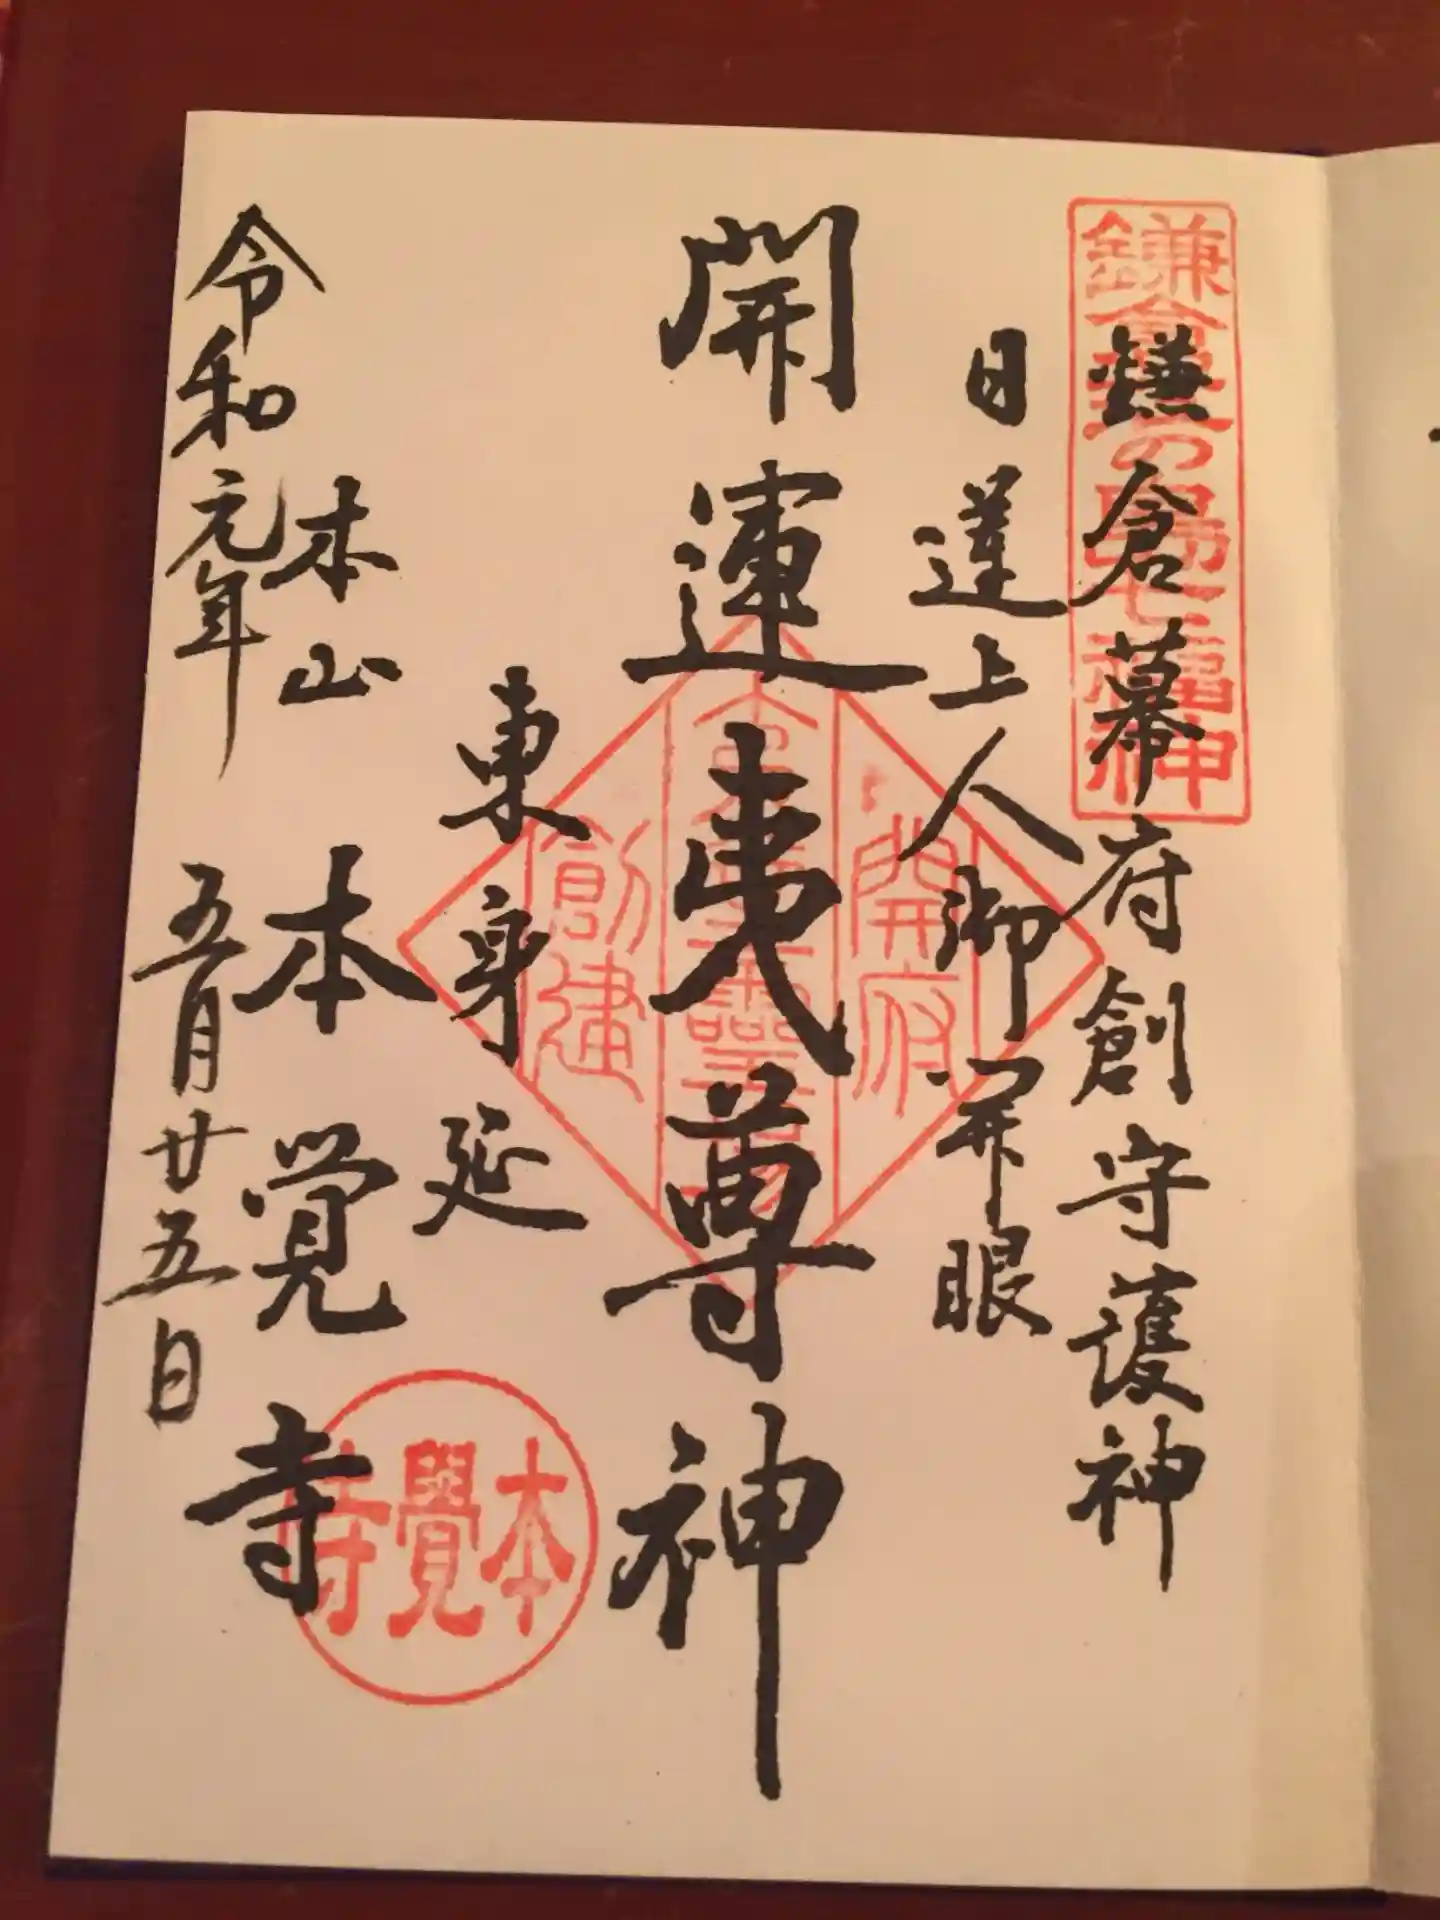 鎌倉幕府創守護神
日蓮上人御開眼
開運夷尊神
東身延
本山 本覚寺
令和元年 五月廿五日
開府
創建
本覺寺